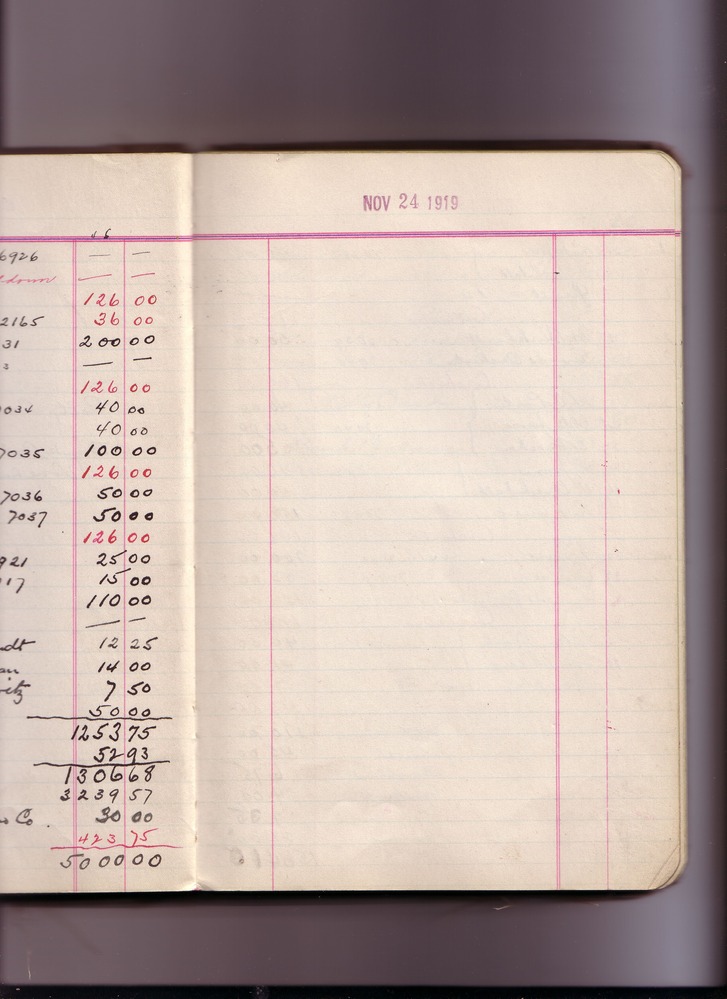 6926 — —
down — —
126 00
36 00
2165
31 200 00
— —
126 00
7034 40 00
40 00
7035 100 00
126 00
7036 50 00
7037 50 00
126 00
921 25 00
117 15 00
110 00
— —
dt 12 25
an 14 00
itz 7 50
50 00
1253 75
52 93
1306 68
3239 57
Co. 30 00
423 75
5000 00
NOV 24 1919